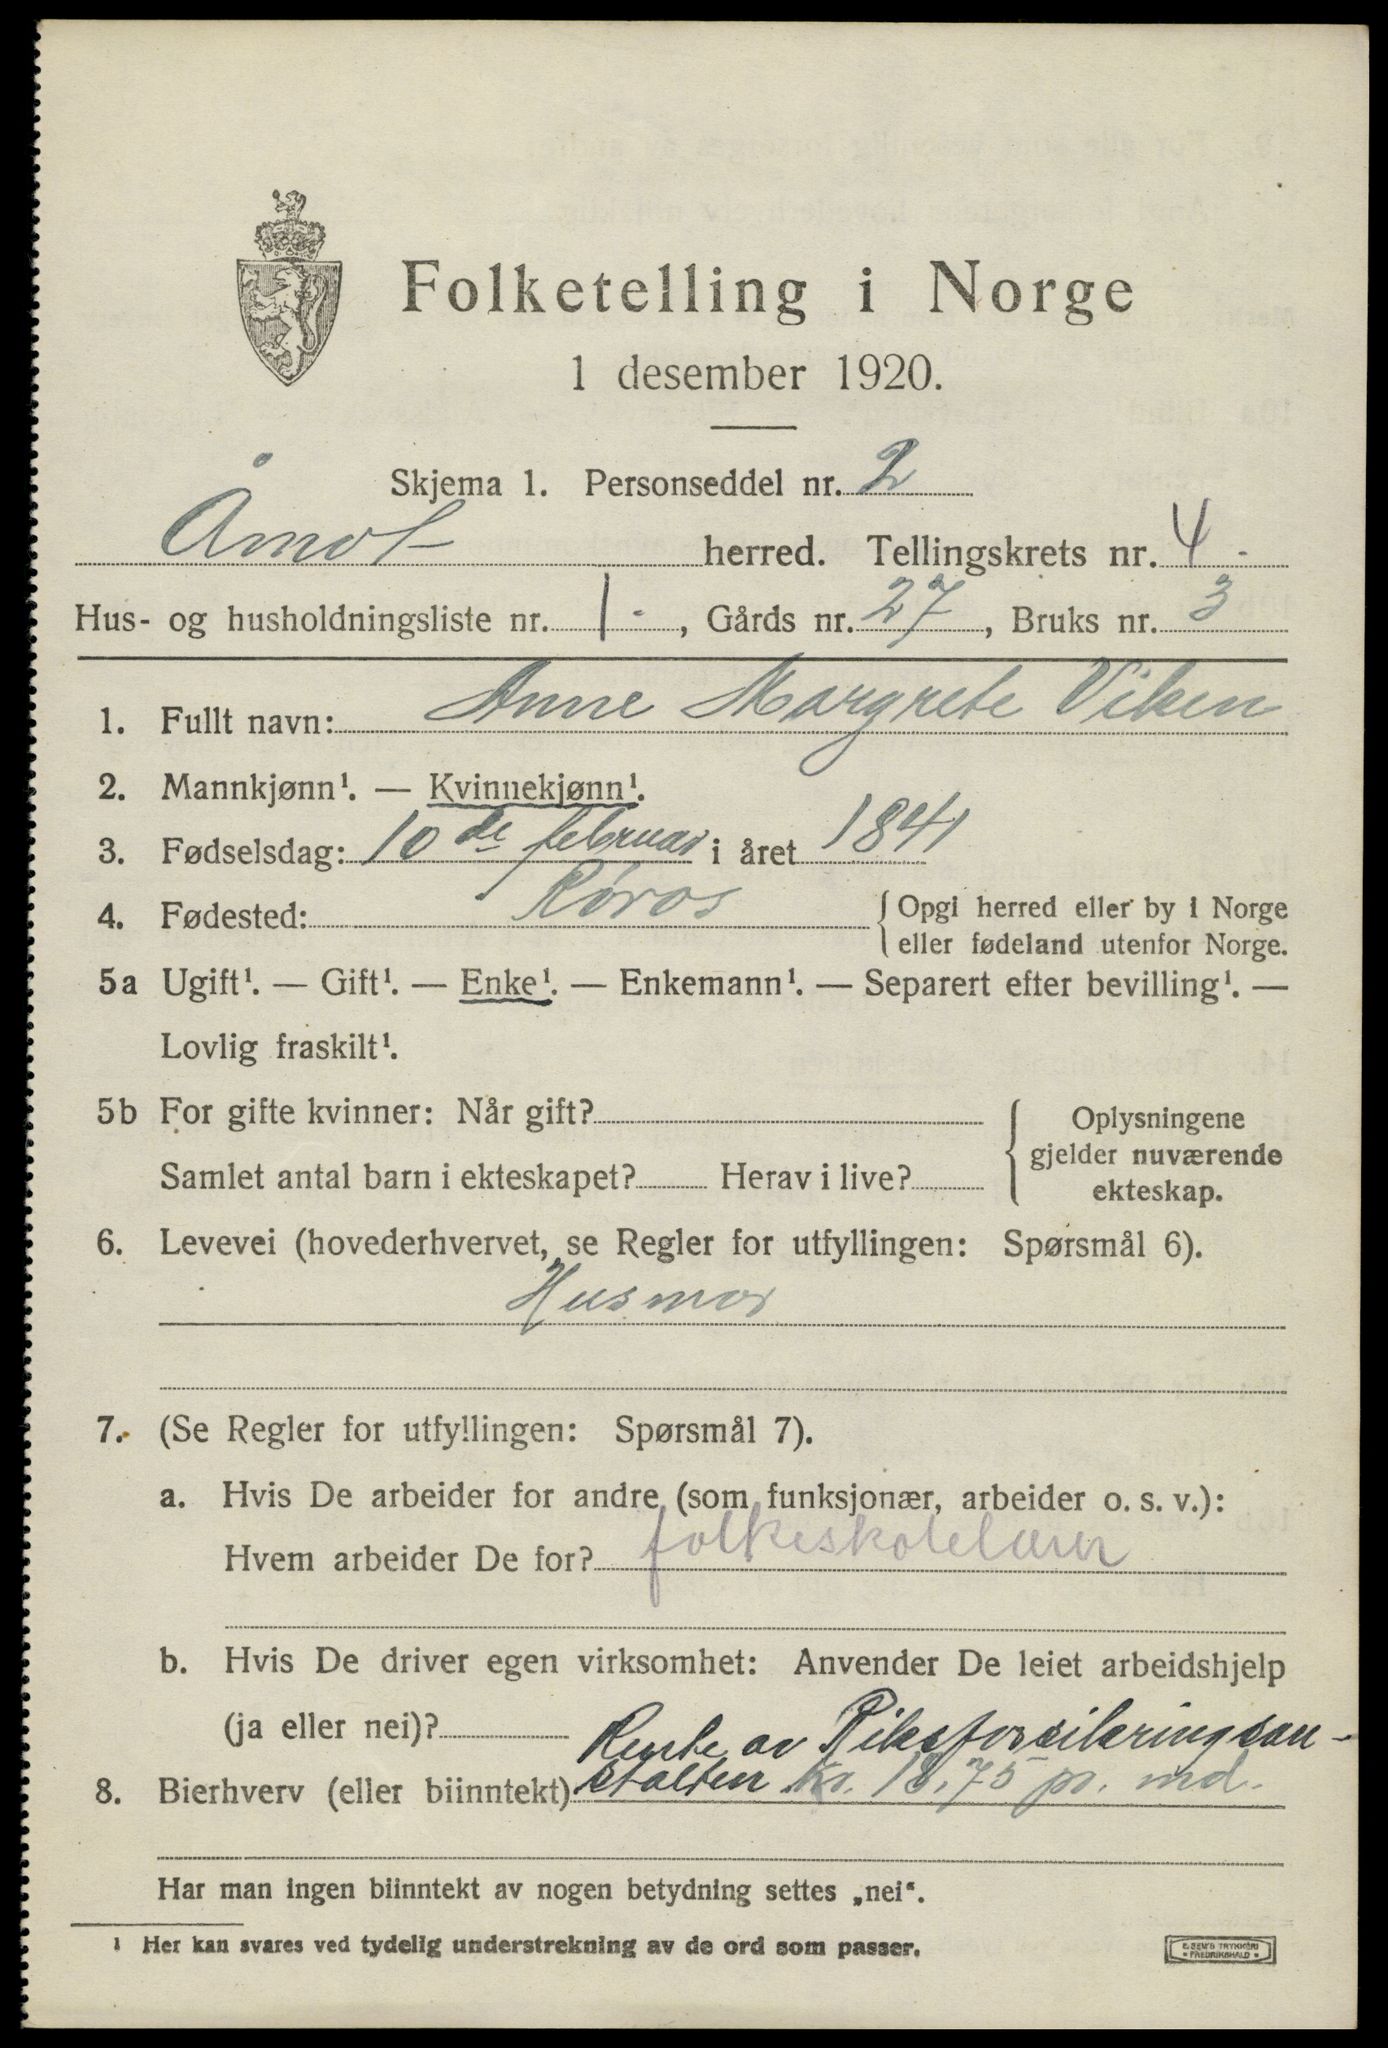 Folketelling i Norge
1 desember 1920.
Skjema 1. Personseddel nr. 2
Åmot herred. Tellingskrets nr. 4.
Hus- og husholdningsliste nr. 1., Gårds nr. 27, Bruks nr. 3
1. Fullt navn: Anne Margrete Viken
2. Mannkjønn¹. — Kvinnekjønn¹.
3. Fødselsdag: 10de februar i året 1841
4. Fødested: Røros { Opgi herred eller by i Norge
eller fødeland utenfor Norge.
5a Ugift¹. — Gift¹. — Enke¹. — Enkemann¹. — Separert efter bevilling¹. —
Lovlig fraskilt¹.
5b For gifte kvinner: Når gift? { Oplysningene
gjelder nuværende
Samlet antal barn i ekteskapet? Herav i live?
ekteskap.
6. Levevei (hovederhvervet, se Regler for utfyllingen: Spørsmål 6).
Husmor
7. (Se Regler for utfyllingen: Spørsmål 7).
a. Hvis De arbeider for andre (som funksjonær, arbeider o. s. v.):
Hvem arbeider De for? folkeskolelærer
b. Hvis De driver egen virksomhet: Anvender De leiet arbeidshjelp
(ja eller nei)?
Rente av Riksforsikringsan-
8. Bierhverv (eller biinntekt) stalten kr. 18,75 pr. md.
Har man ingen biinntekt av nogen betydning settes „nei“.
¹ Her kan svares ved tydelig understrekning av de ord som passer.
E. SEM'S TRYKKERI
FREDRIKSHALD